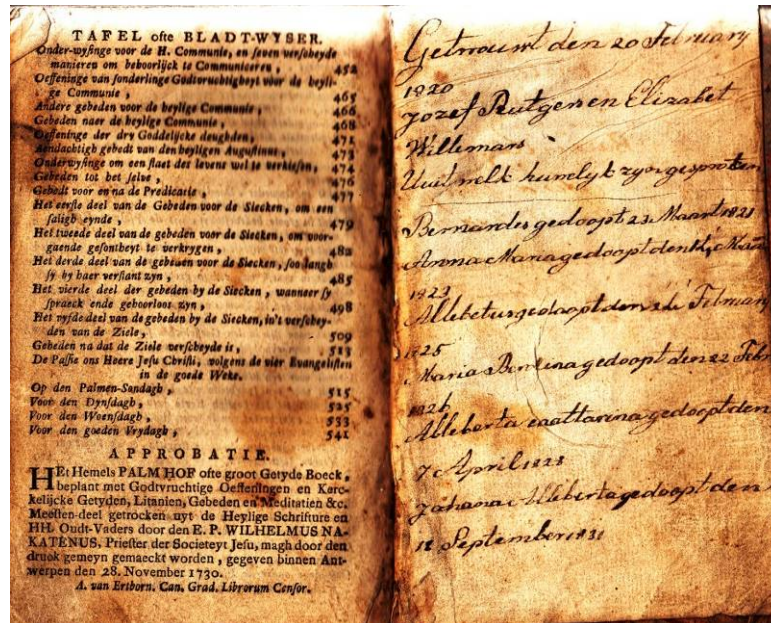 TAFEL ofte BLADT-WYSER.
Onder-wysinge voor de H. Communie, en seven verscheyde
manieren om behoorlijck te Communiceren, 452
Oeffeninge van sonderlinge Godtvruchtigheyt voor de heyli-
ge Communie, 465
Andere gebeden voor de heylige Communie, 466
Gebeden naer de heylige Communie, 468
Oeffeninge der dry Goddelijcke deughden, 471
Aendachtigh gebedt van den heyligen Augustinus, 473
Onderwysinge om een staet des levens wel te verkiesen, 474
Gebeden tot het selve, 476
Gebedt voor en na de Predicatie, 477
Het eerste deel van de Gebeden voor de Siecken, om een
saligh eynde, 479
Het tweede deel van de gebeden voor de Siecken, om voor-
gaende gesontheyt te verkrygen, 482
Het derde deel van de gebeden voor de Siecken, soo langh
sy by haer verstant zyn, 485
Het vierde deel der gebeden by de Siecken, wanneer sy
spraeck ende gehoorloos zyn, 498
Het vyfde deel van de gebeden by de Siecken, in't verschey-
den van de Ziele, 509
Gebeden na dat de Ziele verscheyde is, 513
De Passie ons Heere Jesu Christi, volgens de vier Evangelisten
in de goede Weke.
Op den Palmen-Sondagh, 515
Voor den Dynsdagh, 525
Voor den Woensdagh, 533
Voor den goeden Vrydagh, 541
APPROBATIE.
HEt Hemels PALM HOF ofte groot Getyde Boeck,
beplant met Godtvruchtige Oeffeningen en Kerc-
kelijcke Getyden, Litanien, Gebeden en Meditatien &c.
Meesten-deel getrocken uyt de Heylige Schrifture en
HH. Oudt-Vaders door den E. P. WILHELMUS NA-
KATENUS, Priester der Societeyt Jesu, magh door den
druck gemeyn gemaeckt worden, gegeven binnen Ant-
werpen den 28. November 1730.
A. van Ertborn. Can. Grad. Librorum Censor.
Getrouwt den 20 February
1820
Jozef Rutgens en Elizabet
Willemans
Uuit welk huwelyk zyn gesproten
Bernardes gedoopt 23 Maart 1821
Anna Maria gedoopt den
1823
gedoopt den February
1825
Maria gedoopt den 22 Febr
1826
Alleberta gedoopt den
7 April 1828
Johana Alleberta gedoopt den
12 September 1831